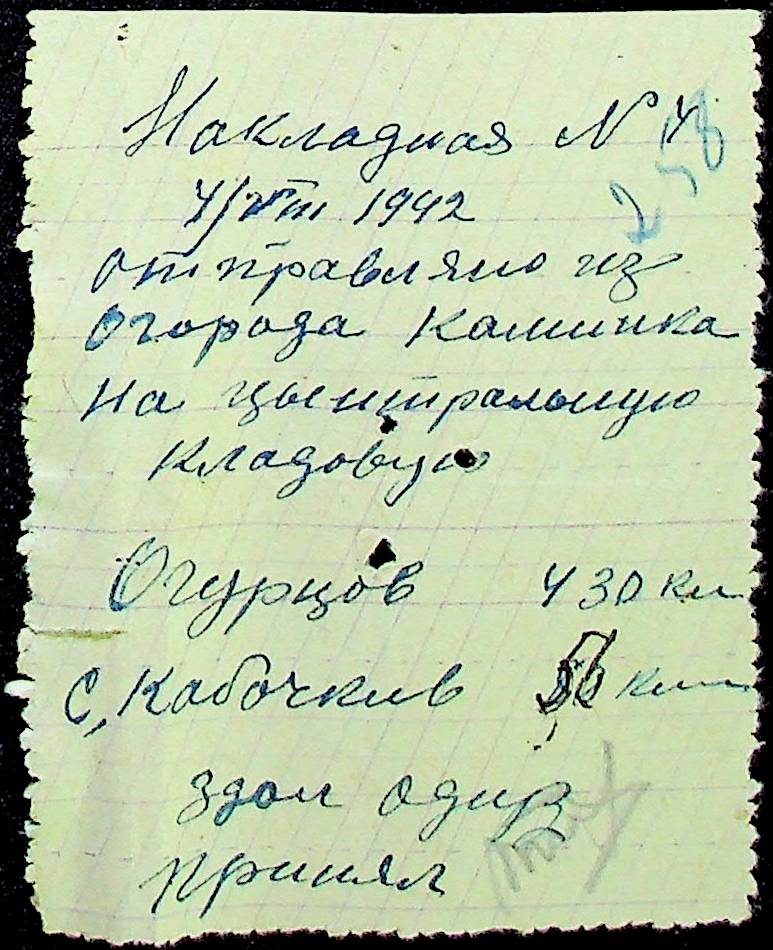 Накладная N 4
258
4/VIII 1942
отправляно из
Огорода Каминка
На цынтральную
кладовую
Огурцов 430 кл
С, Кабочкив 56 кл
здал
принял